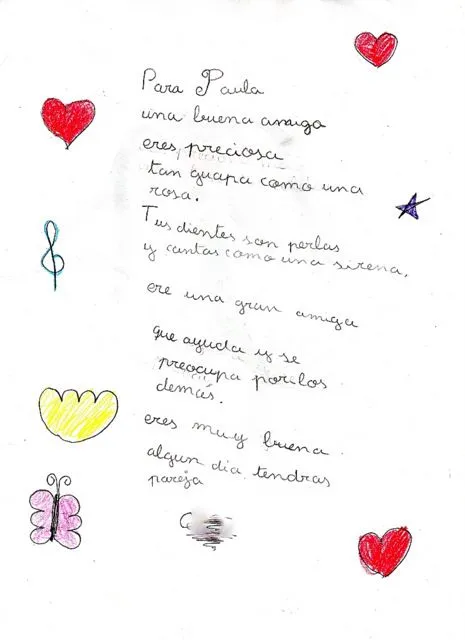 Para Paula
una buena amiga
eres preciosa
tan guapa como una
rosa.
Tus dientes son perlas
y cantas como una sirena.
ere una gran amiga
que ayuda y se
preocupa por los
demás.
eres muy buena.
algun dia tendras
pareja